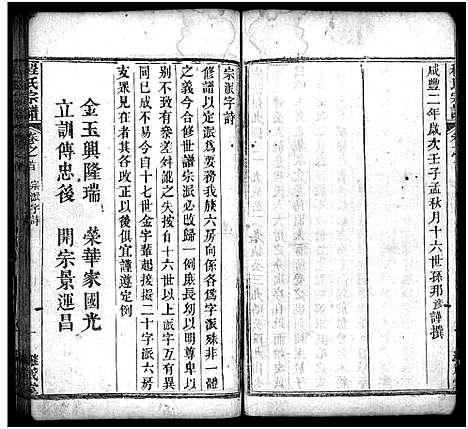 咸豐二年歲次壬子孟秋月十六世孫邦彥謹撰
宗派字詩
修譜以定派爲要務我族六房向係各爲字派殊非一體
之義今合修世譜宗派必敀歸一例庶長幼以明尊卑以
別不致有參差舛訛之失按自十六世以上派字互有異
同已成不易今自十七世金字輩起接擬二十字派六房
支衆見在者改正以後俱宜謹遵定例
金玉興隆瑞 榮華家國光
立訓傳忠後 開宗景運昌
程氏宗譜
卷之首 宗派字詩 一